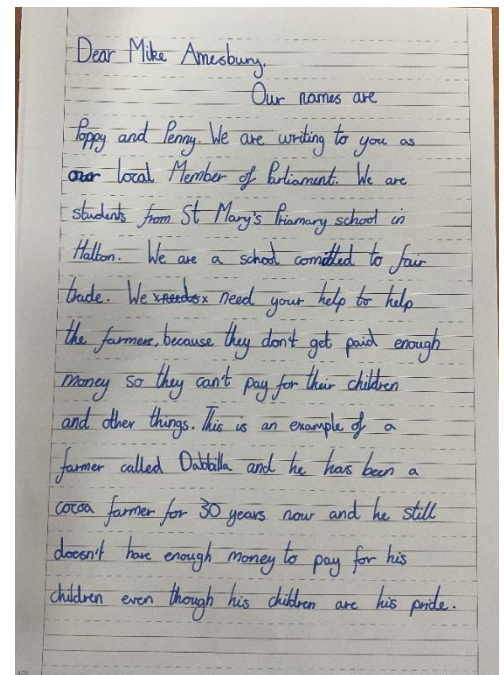 Dear Mike Amesbury,
Our names are
Poppy and Penny. We are writing to you as
our local Member of Parliament. We are
students from St Mary's Priamary school in
Halton. We are a school comitted to fair
trade. We needs need your help to help
the farmers, because they don't get paid enough
money so they can't pay for their children
and other things. This is an example of a
farmer called Dabbilla and he has been a
cocoa farmer for 30 years now and he still
doesn't have enough money to pay for his
children even though his children are his pride.